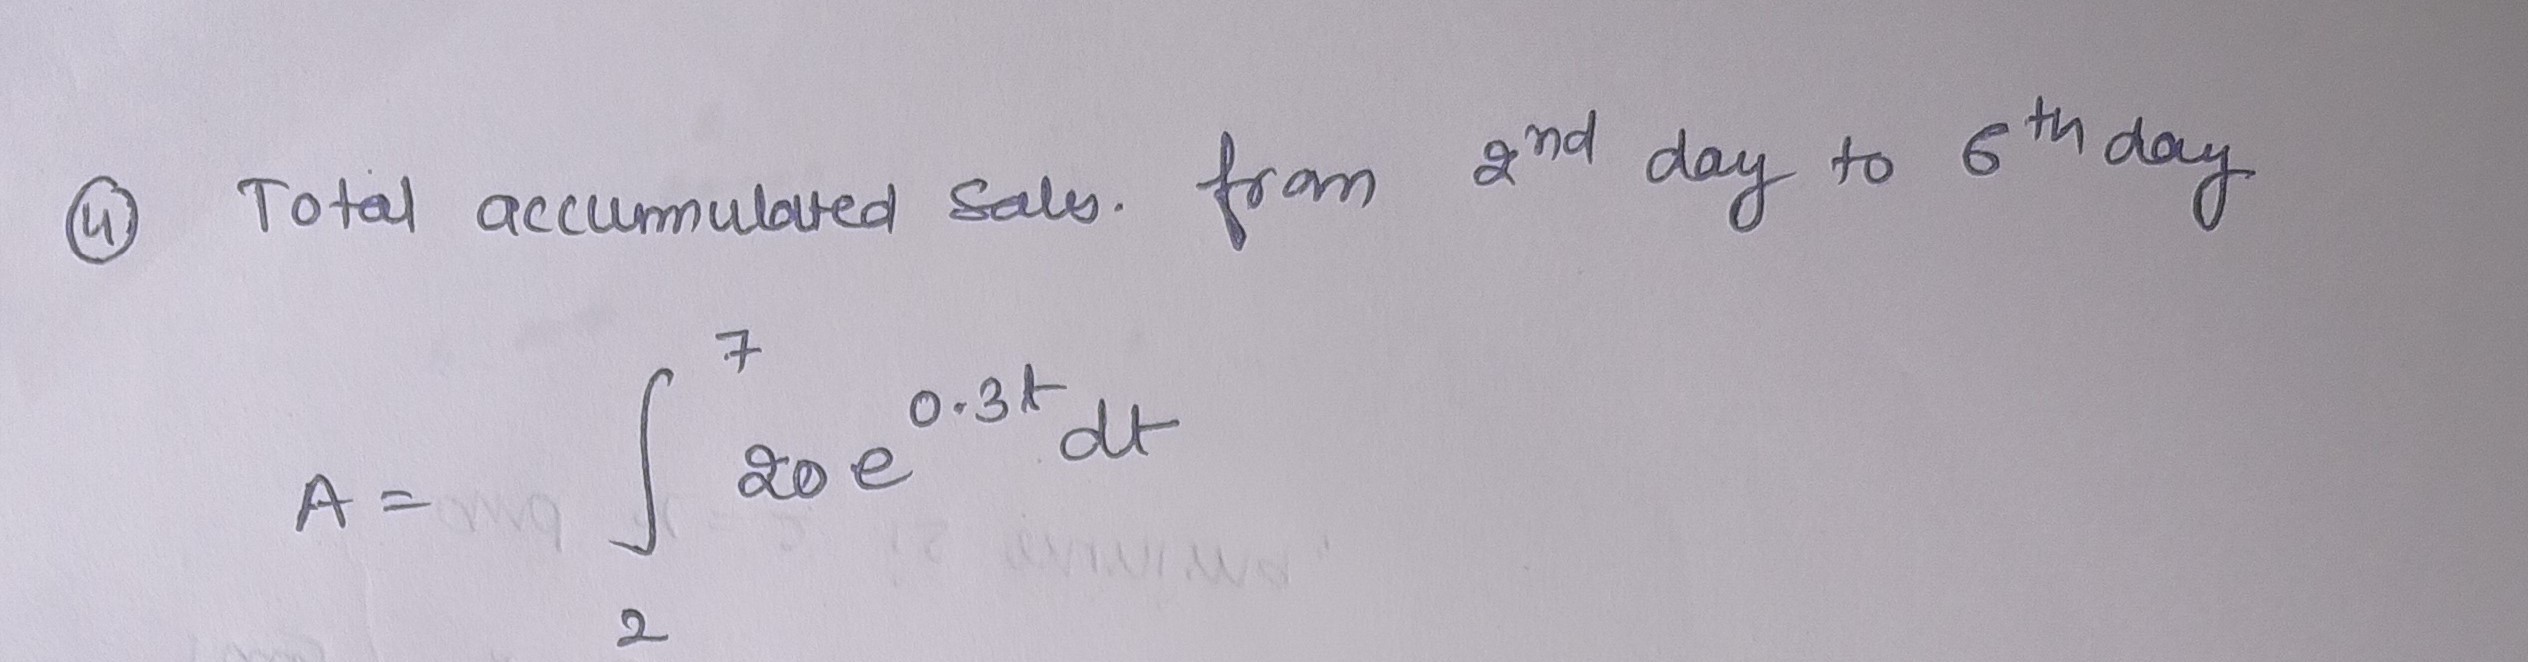 ④ Total accumulated Sales. from 2nd day to 6th day
A = ∫₂⁷ 20 e^0.3t dt